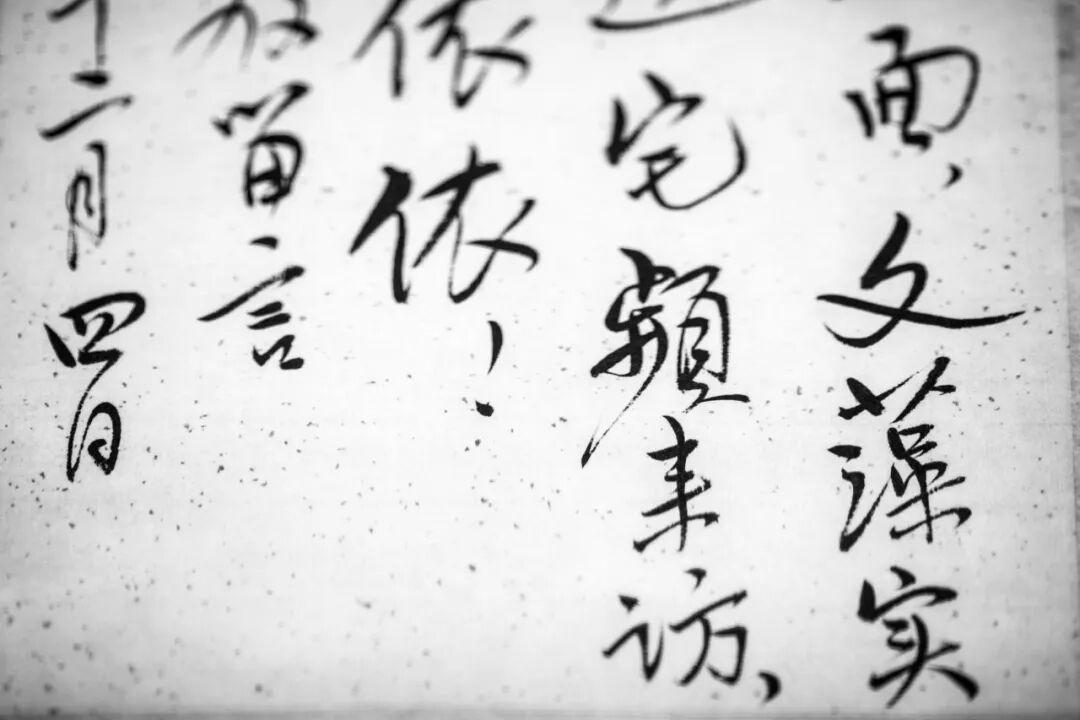 面、文藻实
宅频来访、
依依!
留言
十二月四日